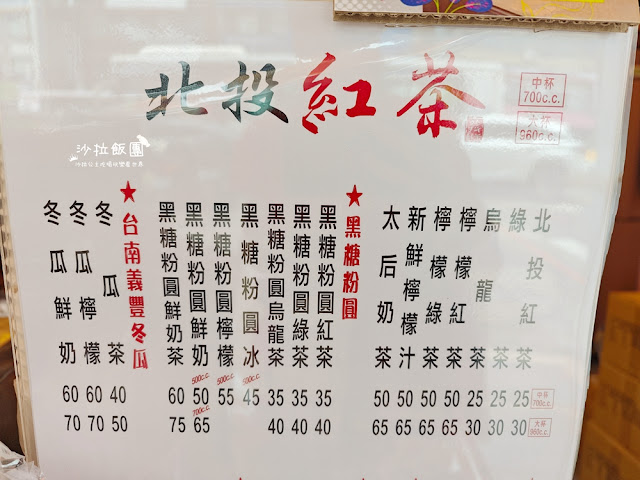 北投紅茶
中杯
700c.c.
大杯
960c.c.
沙拉飯團
北投紅茶 25 30
綠茶 25 30
烏龍茶 25 30
檸檬紅茶 50 65
檸檬綠茶 50 65
新鮮檸檬汁 50 65
太后奶茶 50 65
中杯
700c.c.
大杯
960c.c.
★黑糖粉圓
黑糖粉圓紅茶 35 40
黑糖粉圓綠茶 35 40
黑糖粉圓烏龍茶 35 40
黑糖粉圓冰 45
500c.c.
黑糖粉圓檸檬 55
500c.c.
黑糖粉圓鮮奶 50 65
500c.c.
700c.c.
黑糖粉圓鮮奶茶 60 75
★台南義豐冬瓜
冬瓜茶 40 50
冬瓜檸檬 60 70
冬瓜鮮奶 60 70